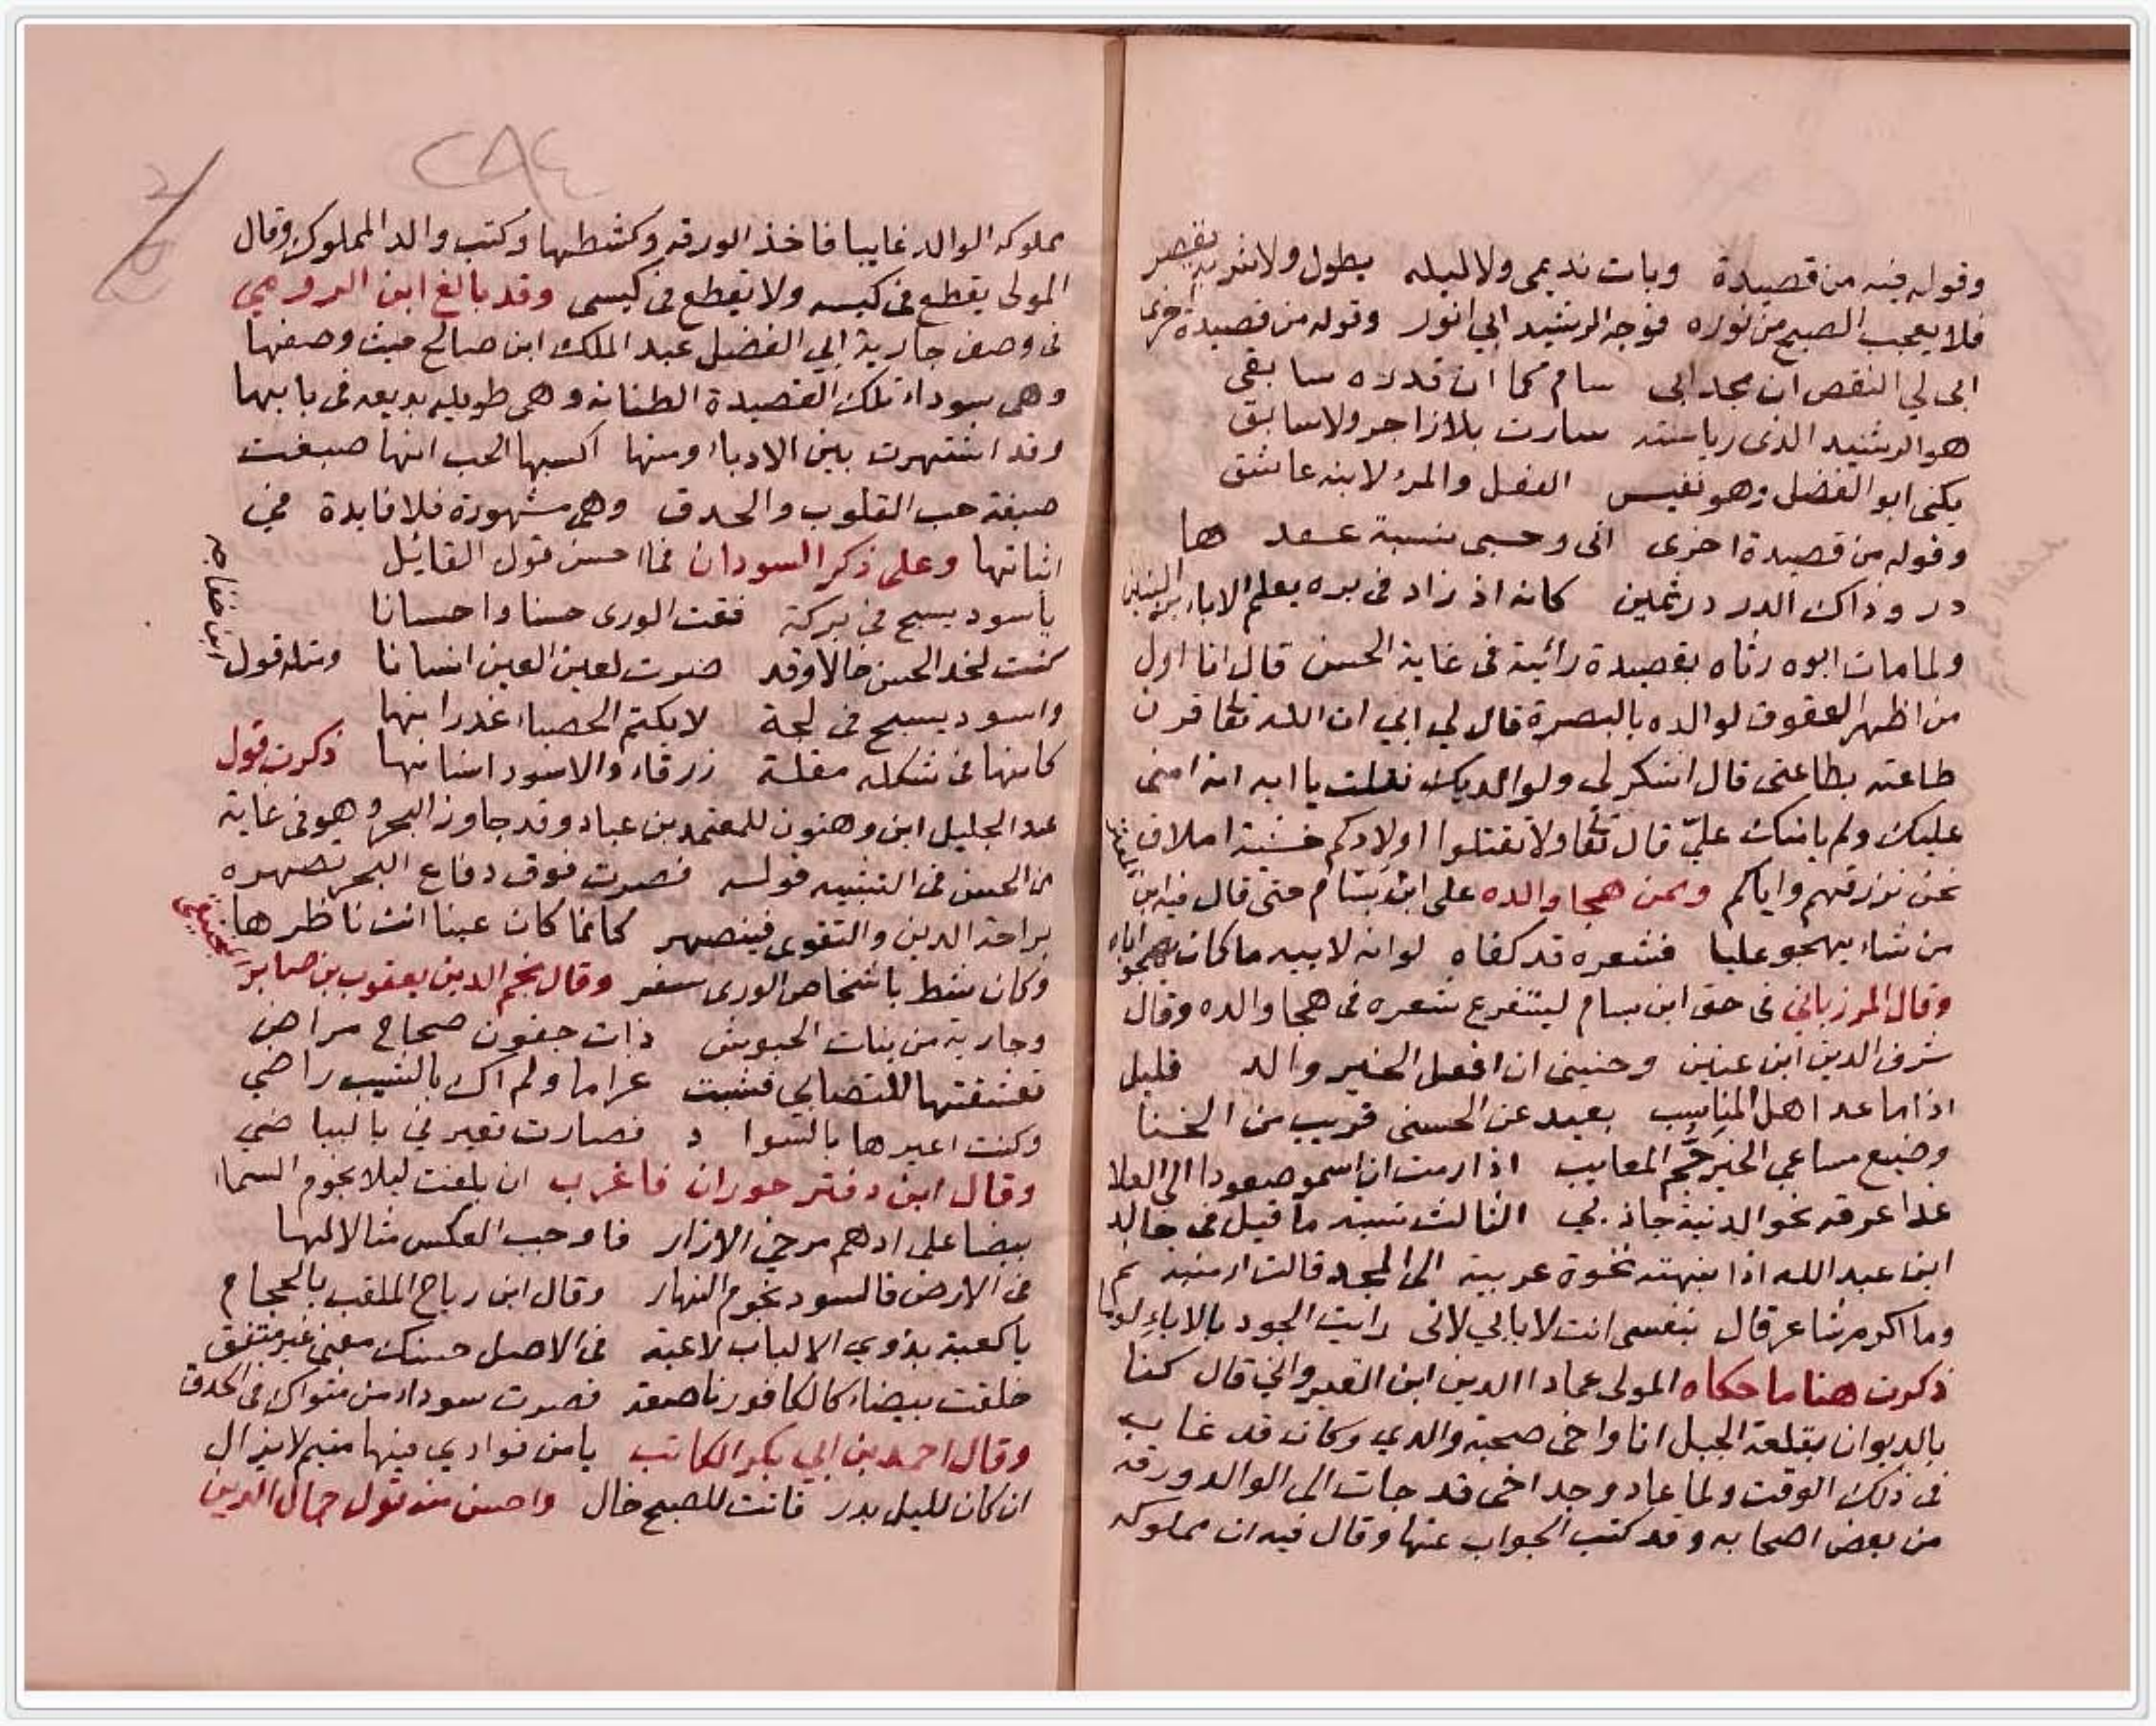 وقوله فيه من قصيدة وبات نديمي ولا ليله يطول ولا شربه يقصر
فلا يعجب الصبح من نوره فوجه الرشيد ابي انور وقوله من قصيدة اخرى
ابى لي النقص ان مجد ابى سام كما ان قدره سابقى
هو الرشيد الذى رياسته سارت بلا زاجر ولا سابق
يكنى ابو الفضل وهو نفيس الفضل والمرء لابنه عاشق
وقوله من قصيدة اخرى انى وحسبى بنسبة عقد ها
در وذاك الدر در ثمين كانه اذ زاد فى بره يعلم الاباء بر البنين
ولما مات ابوه رثاه بقصيدة رائية فى غاية الحسن قال انا اول
من اظهر العقوق لوالده بالبصرة قال لي ابي ان الله تعا قرن
طاعته بطاعتى قال اشكر لى ولوالديك فقلت يا ابه انه امننى
عليك ولم يامنك عليّ قال تعا ولا تقتلوا اولادكم خشية املاق
نحن نرزقهم واياكم وممن هجا والده على ابن بسام حتى قال فيه ابن
من شاء يهجو عليا فشعره قد كفاه لو انه لابيه ما كان يهجو اباه
وقال المرزباني فى حق ابن بسام ليتفرع شعره فى هجا والده وقال
شرف الدين ابن عنين وجنبنى ان افعل الخير والد قليل
اذا ما عد اهل المناسب بعيد عن الحسنى قريب من الخنا
وضيع مساعي الخير جم المعايب اذا رمت ان اسمو صعودا الى العلا
غدا عرقه نحو الدنية جاذبي الثالث نسبه ما قيل فى خالد
ابن عبد الله اذا نبهته نخوة عربية الى المجد قالت ارمنيته نم
وما اكرم شاعر قال بنفسى انت لا بابي لانى رايت الجود بالاباء لوما
ذكرت هنا ما حكاه المولى عماد الدين ابن القيروانى قال كنا
بالديوان بقلعة الجبل انا واخى صحبة والدي وكان قد غاب
فى ذلك الوقت ولما عاد وجد اخى قد جات الى الوالد ورقه
من بعض اصحابه وقد كتب الجواب عنها وقال فيه ان مملوكه
٢٨٤
مملوكه الوالد غايبا فاخذ الورقه وكشطها وكتب والد المملوك وقال
المولى يقطع فى كيسه ولا يقطع فى كيسى وقد بالغ ابن الرومي
فى وصف جارية ابي الفضل عبد الملك ابن صالح حيث وصفها
وهى سوداء تلك القصيدة الطنانه وهى طويله بديعه فى بابها
وقد اشتهرت بين الادباء ومنها اكسبها الحب انها صبغت
صبغة حب القلوب والحدق وهى مشهورة فلا فايدة في
اثباتها وعلى ذكر السودان فما احسن قول القائل
ياسود يسبح في بركة فقت الورى حسنا واحسانا
كنت لخد الحسن خالا وقد صرت لعين العين انسانا ومثله قول
ابن خفاجه
واسود يسبح فى لجة لا يكتم الحصباء غدرانها
كانها فى شكله مقلة زرقاء والاسود انسانها ذكرت قول
عبد الجليل ابن وهبون للمعتمد بن عباد وقد جاوز البحر وهو فى غاية
من الحسن فى التشبيه قوله فصرت فوق دفاع البحر تصهره
براحة الدين والتقوى فينصهر كانما كان عينا انت ناظرها
وكان شط باشخاص الورى سفر وقال نجم الدين يعقوب بن صابر المنجنيقى
وجارية من بنات الحبوش ذات جفون صحاح مراض
تعشقتها للتصابي فشبت غراما ولم اك بالشيب راضي
وكنت اعيرها بالسوا د فصارت تعيرني بالبياضي
وقال ابن دفتر حوران فاغرب ان بلغت ليلا نجوم السماء
بيضا على ادهم مرخي الازار فاوجب العكس مثالا لها
فى الارض فالسود نجوم النهار وقال ابن رباح الملقب بالحجام
ياكعبة بذوي الالباب لاعبة فى الاصل حسنك معنى غير متفق
خلقت بيضاء كالكافور ناصعة فصرت سوداء من مثواك فى الحدق
وقال احمد بن ابي بكر الكاتب يامن فوادي فيها متيم لا يزال
ان كان لليل بدر فانت للصبح خال واحسن منه قول جمال الدين